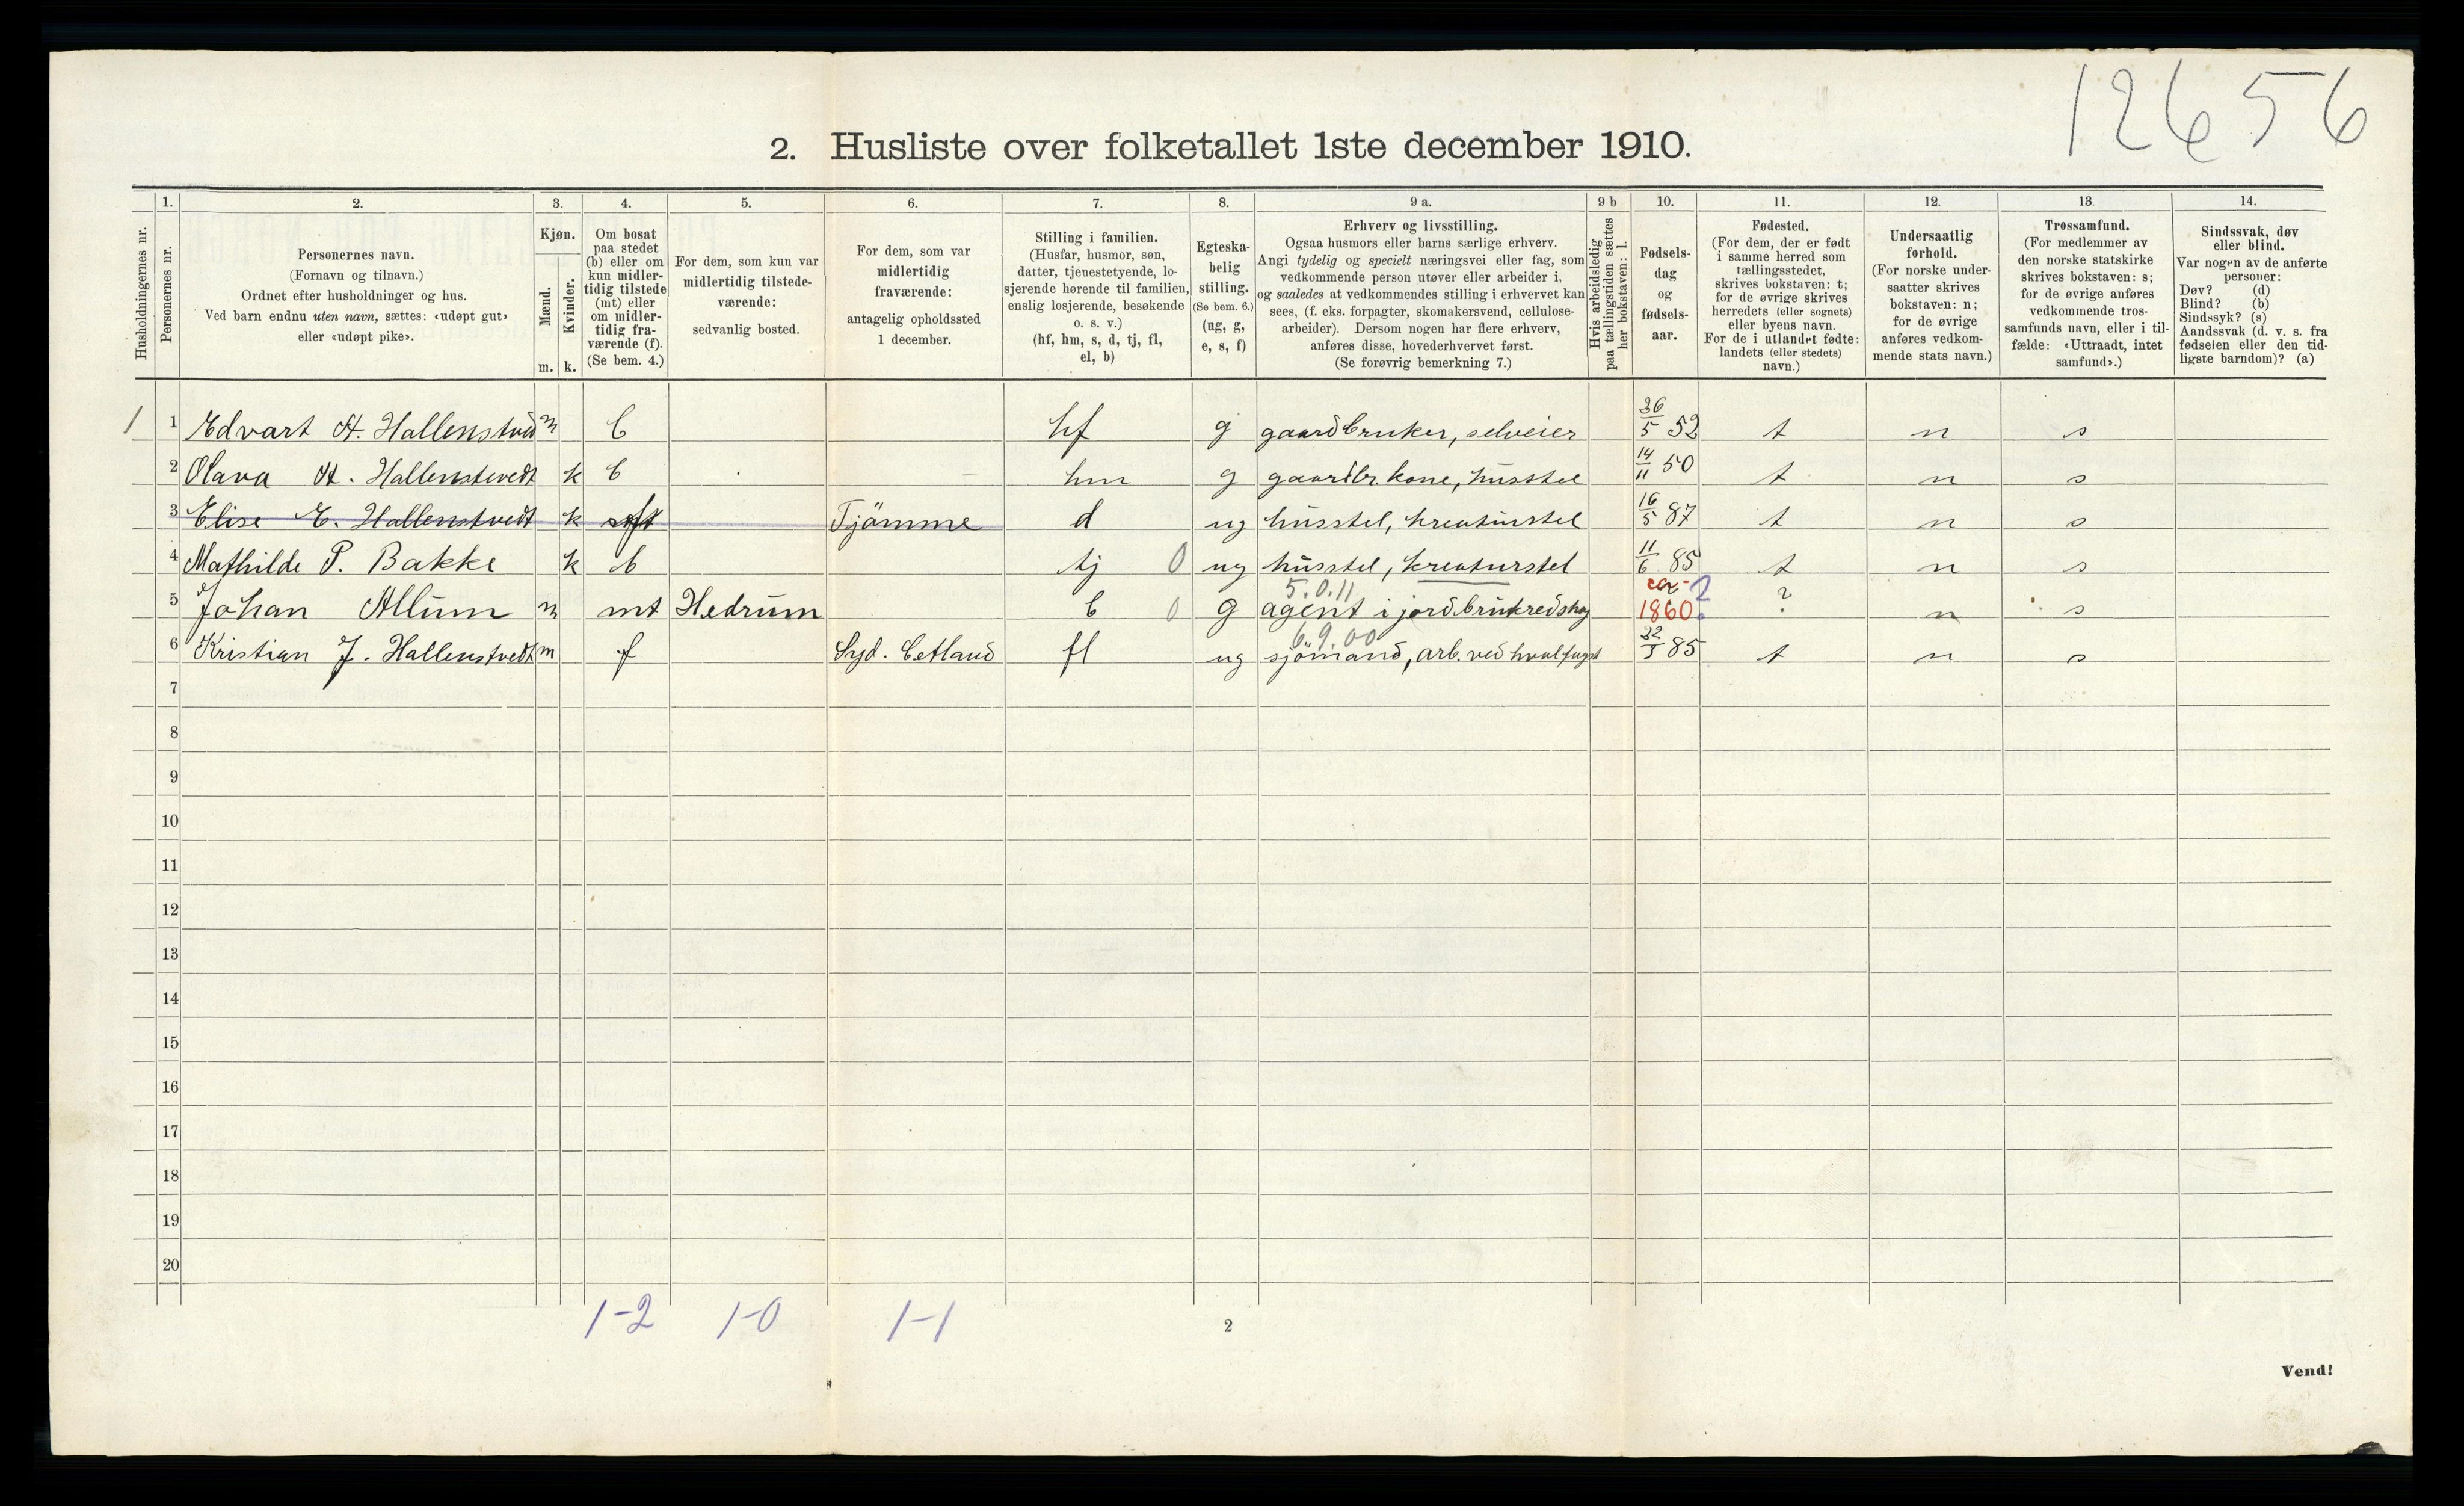 12656
2. Husliste over folketallet 1ste december 1910.
Husholdningernes nr.
1.
Personernes nr.
2.
Personernes navn.
(Fornavn og tilnavn.)
Ordnet efter husholdninger og hus.
Ved barn endnu uten navn, sættes: «udøpt gut»
eller «udøpt pike».
3.
Kjøn.
Mænd.
Kvinder.
m. k.
4.
Om bosat
paa stedet
(b) eller om
kun midler-
tidig tilstede
(mt) eller
om midler-
tidig fra-
værende (f).
(Se bem. 4.)
5.
For dem, som kun var
midlertidig tilstede-
værende:
sedvanlig bosted.
6.
For dem, som var
midlertidig
fraværende:
antagelig opholdssted
1 december.
7.
Stilling i familien.
(Husfar, husmor, søn,
datter, tjenestetyende, lo-
sjerende hørende til familien,
enslig losjerende, besøkende
o. s. v.)
(hf, hm, s, d, tj, fl,
el, b)
8.
Egteska-
belig
stilling.
(Se bem. 6.)
(ug, g,
e, s, f)
9 a.
Erhverv og livsstilling.
Ogsaa husmors eller barns særlige erhverv.
Angi tydelig og specielt næringsvei eller fag, som
vedkommende person utøver eller arbeider i,
og saaledes at vedkommendes stilling i erhvervet kan
sees, (f. eks. forpagter, skomakersvend, cellulose-
arbeider). Dersom nogen har flere erhverv,
anføres disse, hovederhvervet først.
(Se forøvrig bemerkning 7.)
9 b
Hvis arbeidsledig
paa tællingstiden sættes
her bokstaven: l.
10.
Fødsels-
dag
og
fødsels-
aar.
11.
Fødested.
(For dem, der er født
i samme herred som
tællingsstedet,
skrives bokstaven: t;
for de øvrige skrives
herredets (eller sognets)
eller byens navn.
For de i utlandet fødte:
landets (eller stedets)
navn.)
12.
Undersaatlig
forhold.
(For norske under-
saatter skrives
bokstaven: n;
for de øvrige
anføres vedkom-
mende stats navn.)
13.
Trossamfund.
(For medlemmer av
den norske statskirke
skrives bokstaven: s;
for de øvrige anføres
vedkommende tros-
samfunds navn, eller i til-
fælde: «Uttraadt, intet
samfund».)
14.
Sindssvak, døv
eller blind.
Var nogen av de anførte
personer:
Døv? (d)
Blind? (b)
Sindssyk? (s)
Aandssvak (d. v. s. fra
fødselen eller den tid-
ligste barndom)? (a)
1 1 Edvart A. Hallenstved m b hf g gaardbruker, selveier 26/5 52 t n s
2 Olava A. Hallenstevedt k b hm g gaardbr. kone, husstel 14/11 50 t n s
3 Elise E. Hallenstvedt k Tjömme d ug husstel, kreaturstel 16/5 87 t n s
4 Mathilde P. Bakke k b tj 0 ug husstel, kreaturstel 11/6 85 t n s
5.0.11 ca ?
5 Johan Allum m mt Hedrum b 0 g agent i jordbrukredskaj 1860 ? n s
6.9.00
6 Kristian J. Hallenstvedt m f fl ug sjömand, arb. ved hvalfangst 85 t n s
7
8
9
10
11
12
13
14
15
16
17
18
19
20
1-2 1-0 1-1
2
Vend!